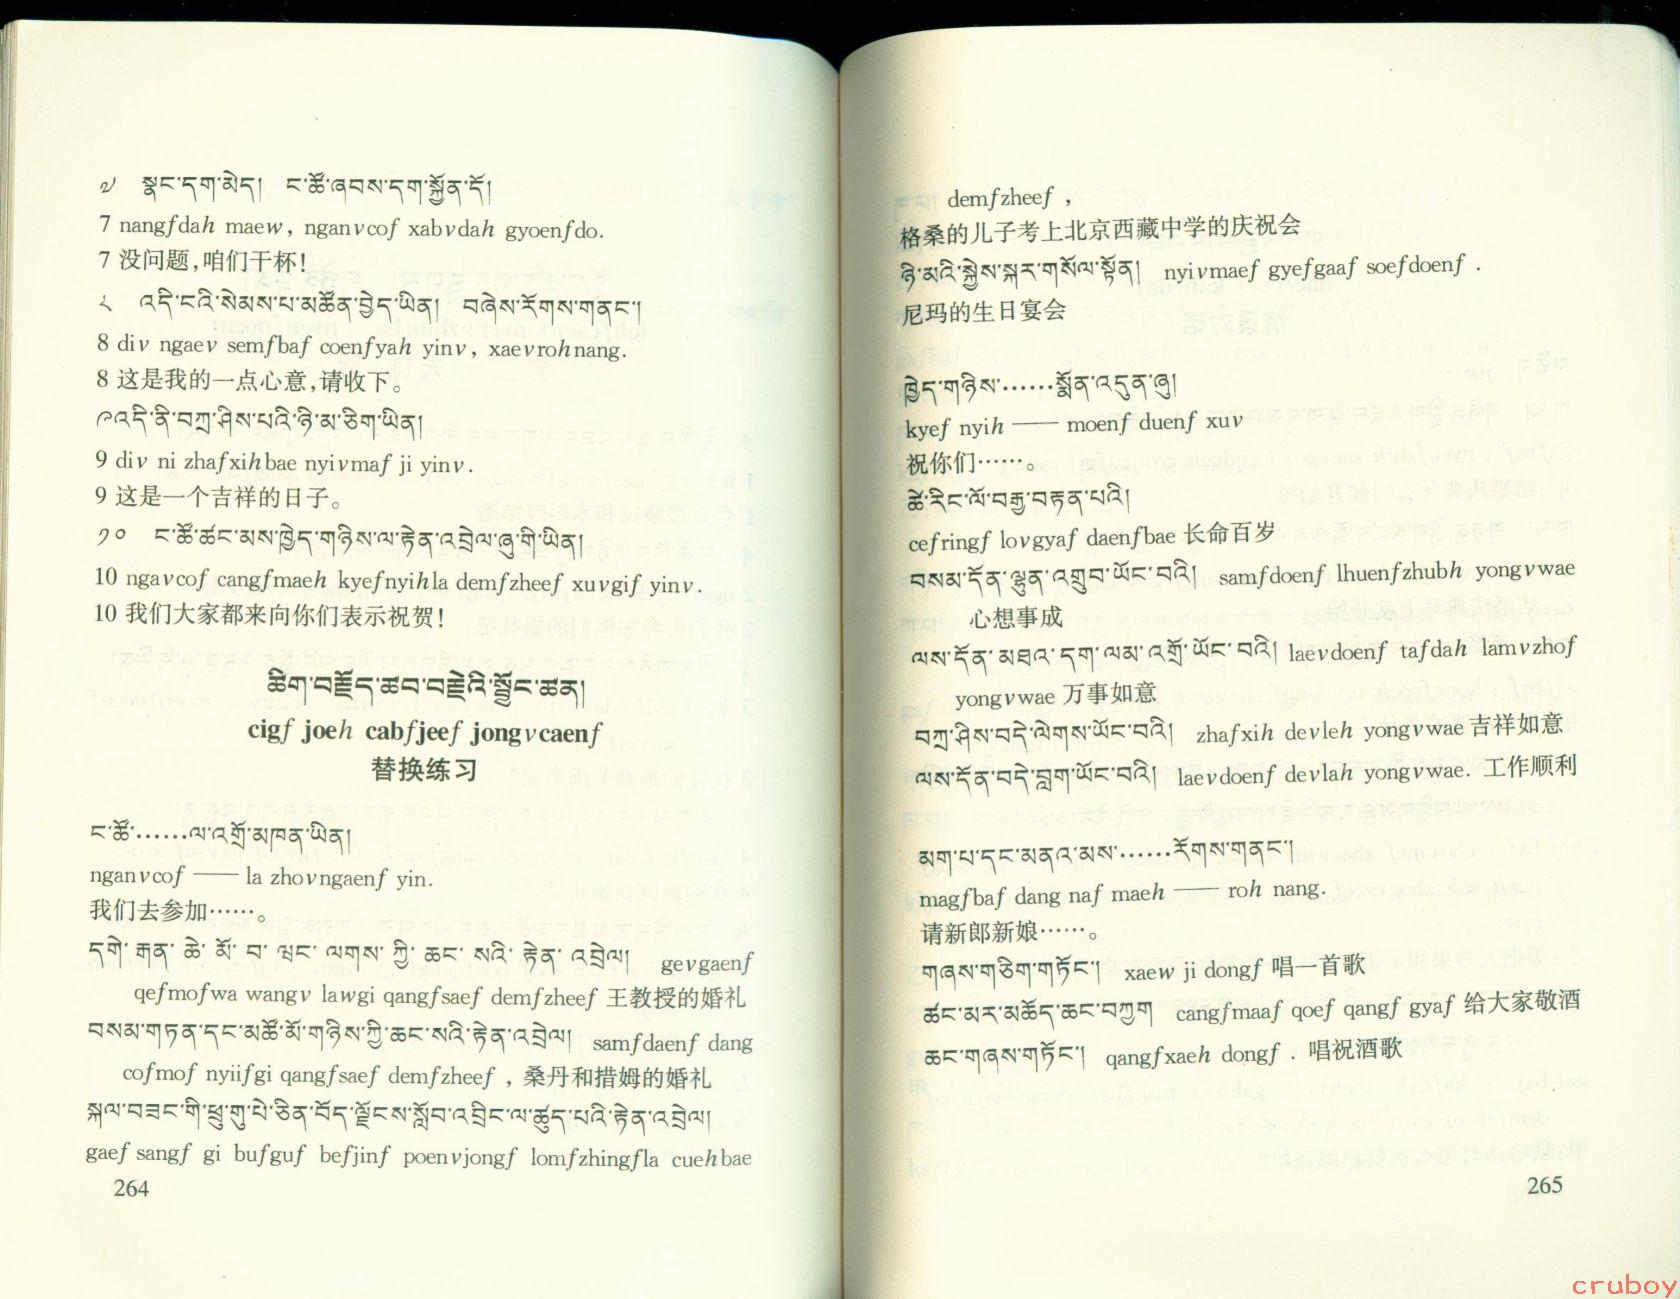 ༧ སྣང་དག་མེད། ང་ཚོ་ཞབས་དག་སྐྱོན་དོ།
7 nangfdah maew, nganvcof xabvdah gyoenfdo.
7 没问题,咱们干杯!
༨ འདི་ངའི་སེམས་པ་མཚོན་བྱེད་ཡིན། བཞེས་རོགས་གནང་།
8 div ngaev semfbaf coenfyah yinv, xaevrohnang.
8 这是我的一点心意,请收下。
༩འདི་ནི་བཀྲ་ཤིས་པའི་ཉི་མ་ཅིག་ཡིན།
9 div ni zhafxihbae nyivmaf ji yinv.
9 这是一个吉祥的日子。
༡༠ ང་ཚོ་ཚང་མས་ཁྱེད་གཉིས་ལ་རྟེན་འབྲེལ་ཞུ་གི་ཡིན།
10 ngavcof cangfmaeh kyefnyihla demfzheef xuvgif yinv.
10 我们大家都来向你们表示祝贺!
ཚིག་བརྗོད་ཚབ་བརྗེའི་སྦྱོང་ཚན།
cigf joeh cabfjeef jongvcaenf
替换练习
ང་ཚོ་……ལ་འགྲོ་མཁན་ཡིན།
nganvcof —— la zhovngaenf yin.
我们去参加……。
དགེ་ རྒན་ ཆེ་ མོ་ བ་ ཝང་ ལགས་ ཀྱི་ ཆང་ སའི་ རྟེན་ འབྲེལ། gevgaenf
qefmofwa wangv lawgi qangfsaef demfzheef 王教授的婚礼
བསམ་གཏན་དང་མཚོ་མོ་གཉིས་ཀྱི་ཆང་སའི་རྟེན་འབྲེལ། samfdaenf dang
cofmof nyiifgi qangfsaef demfzheef , 桑丹和措姆的婚礼
སྐལ་བཟང་གི་ཕྲུ་གུ་པེ་ཅིན་བོད་ལྗོངས་སློབ་འབྲིང་ལ་ཚུད་པའི་རྟེན་འབྲེལ།
gaef sangf gi bufguf befjinf poenvjongf lomfzhingfla cuehbae
264
demfzheef ,
格桑的儿子考上北京西藏中学的庆祝会
ཉི་མའི་སྐྱེས་སྐར་གསོལ་སྟོན། nyivmaef gyefgaaf soefdoenf .
尼玛的生日宴会
ཁྱེད་གཉིས་……སྨོན་འདུན་ཞུ།
kyef nyih —— moenf duenf xuv
祝你们……。
ཚེ་རིང་ལོ་བརྒྱ་བརྟན་པའི།
cefringf lovgyaf daenfbae 长命百岁
བསམ་དོན་ལྷུན་འགྲུབ་ཡོང་བའི། samfdoenf lhuenfzhubh yongvwae
心想事成
ལས་དོན་ མཐའ་ དག་ ལམ་ འགྲོ་ ཡོང་ བའི། laevdoenf tafdah lamvzhof
yongvwae 万事如意
བཀྲ་ཤིས་བདེ་ལེགས་ཡོང་བའི། zhafxih devleh yongvwae 吉祥如意
ལས་དོན་བདེ་བླག་ཡོང་བའི། laevdoenf devlah yongvwae. 工作顺利
མག་པ་དང་མནའ་མས་……རོགས་གནང་།
magfbaf dang naf maeh —— roh nang.
请新郎新娘……。
གཞས་གཅིག་གཏོང་། xaew ji dongf 唱一首歌
ཚང་མར་མཆོད་ཆང་བཀྱག cangfmaaf qoef qangf gyaf 给大家敬酒
ཆང་གཞས་གཏོང་། qangfxaeh dongf . 唱祝酒歌
265
cruboy